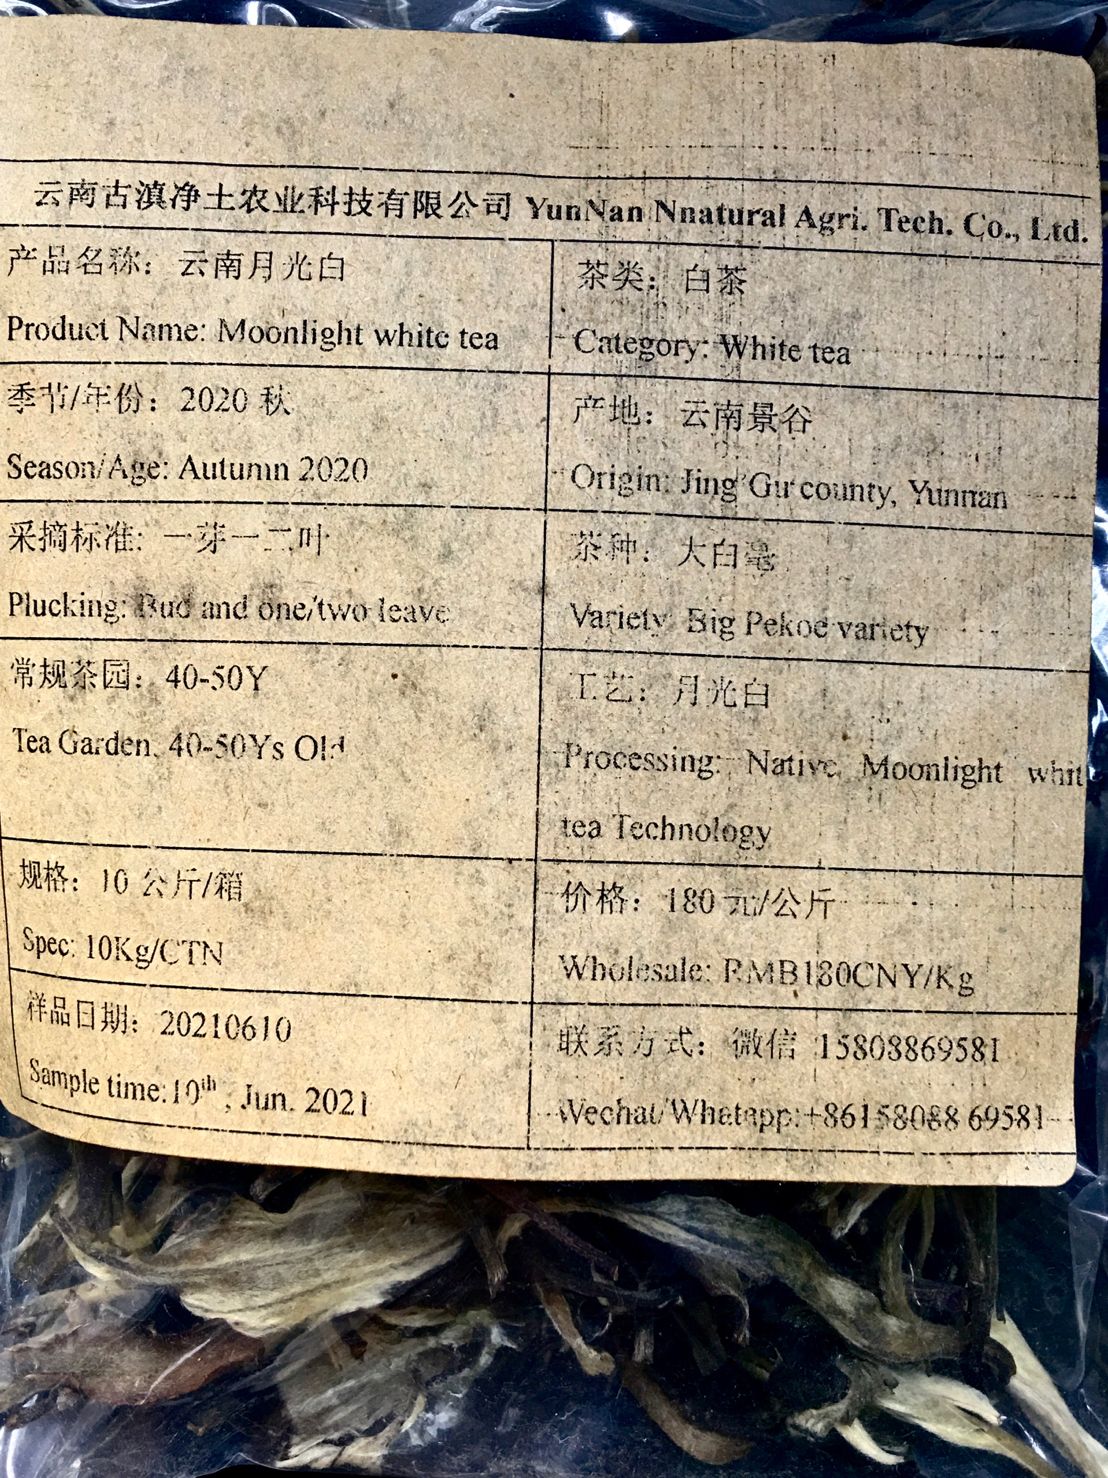 云南古滇净土农业科技有限公司 YunNan Nnatural Agri. Tech. Co., Ltd.
产品名称：云南月光白
Product Name: Moonlight white tea
茶类：白茶
Category: White tea
季节/年份：2020 秋
Season/Age: Autumn 2020
产地：云南景谷
Origin: Jing Gu county, Yunnan
采摘标准: 一芽一二叶
Plucking: Bud and one/two leave
茶种：大白毫
Variety: Big Pekoe variety
常规茶园：40-50Y
Tea Garden: 40-50Ys Old
工艺：月光白
Processing: Native Moonlight whit
tea Technology
规格：10 公斤/箱
Spec: 10Kg/CTN
价格：180 元/公斤
Wholesale: RMB180CNY/Kg
样品日期：20210610
Sample time:10th , Jun. 2021
联系方式：微信 15808869581
Wechat/Whatapp:+86158088 69581